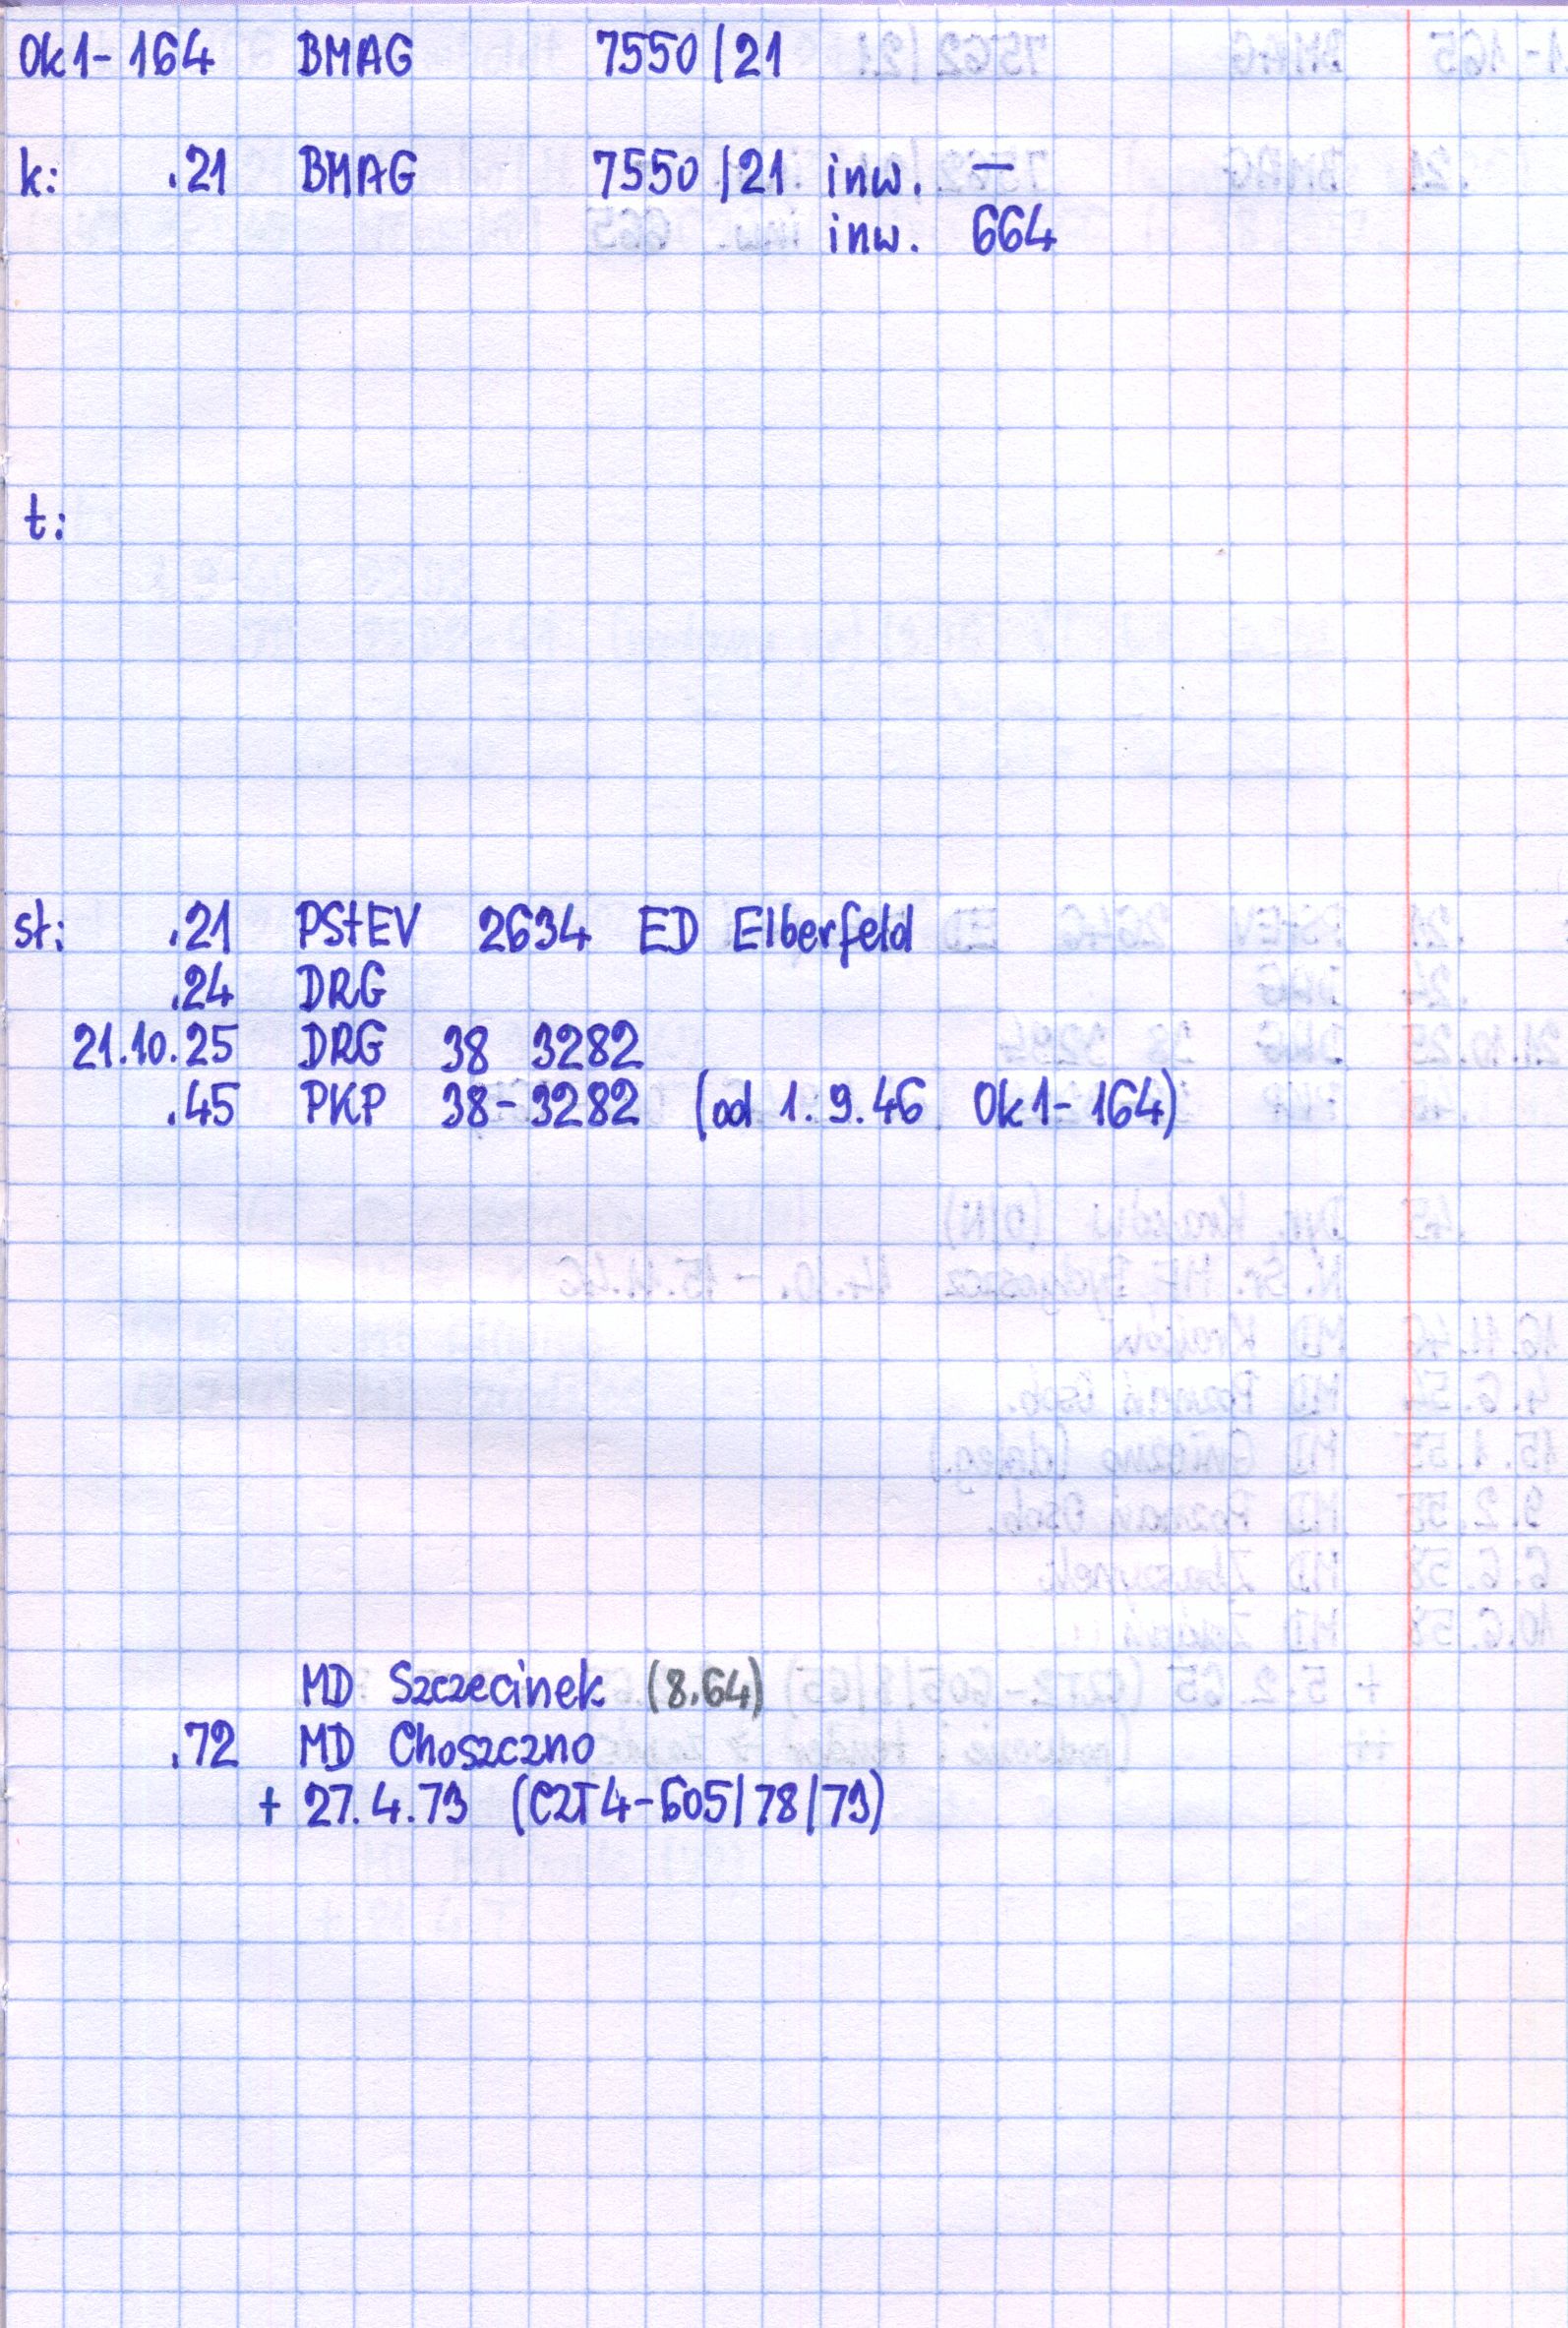 Ok1-164 BMAG 7550/21
k: .21 BMAG 7550/21 inw. —
inw. 664
t:
st: .21 PStEV 2634 ED Elberfeld
.24 DRG
21.10.25 DRG 38 3282
.45 PKP 38-3282 (od 1.9.46 Ok1-164)
MD Szczecinek (8.64)
.72 MD Choszczno
+ 27.4.73 (CZT4-605/78/73)